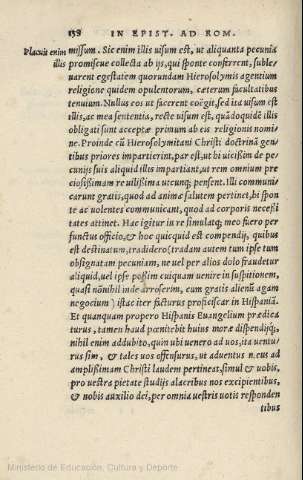 138 IN EPIST. AD ROM.
Placuit enim illis
missum. Sic enim illis uisum est, ut aliquanta pecunia
promiscue collecta ab ijs, qui sponte conferrent, suble⸗
uarent egestatem quorundam Hierosolymis agentium
religione quidem opulentorum, cæterum facultatibus
tenuium. Nullus eos ut facerent coëgit, sed ita uisum est
illis, ac mea sententia, recte uisum est, quãdoquidẽ illis
obligati sunt acceptæ primum ab eis religionis nomi⸗
ne. Proinde cũ Hierosolymitani Christi doctrinã gen⸗
tibus priores impartierint, par est, ut hi uicissim de pe⸗
cunijs suis aliquid illis impartiant, ut rem omnium pre
ciosissimam re uilissima utcunq; pensent. Illi communi
carunt gratis, quod ad animæ salutem pertinet, hi spon
te ac uolentes communicant, quod ad corporis necessi
tates attinet. Hac igitur in re simulatq; meo fuero per
functus officio, & hoc quicquid est compendij, quibus
est destinatum, tradidero: tradam autem tum ipse tum
obsignatam pecuniam, ne uel per alios dolo fraudetur
aliquid, uel ipse possim cuiquam uenire in suspitionem,
quasi nõnihil inde arroserim, cum gratis alienũ agam
negocium) istac iter facturus proficiscar in Hispaniã.
Et quanquam propero Hispanis Euangelium prædica
turus, tamen haud pœnitebit huius moræ dispendijq́;
nihil enim addubito, quin ubi uenero ad uos, ita uentu/
rus sim, & tales uos offensurus, ut aduentus meus ad
amplissimam Christi laudem pertineat, simul & uobis,
pro uestra pietate studijs alacribus nos excipientibus,
& nobis auxilio dei, per omnia uestris uotis responden
tibus
Ministerio de Educación, Cultura y Deporte